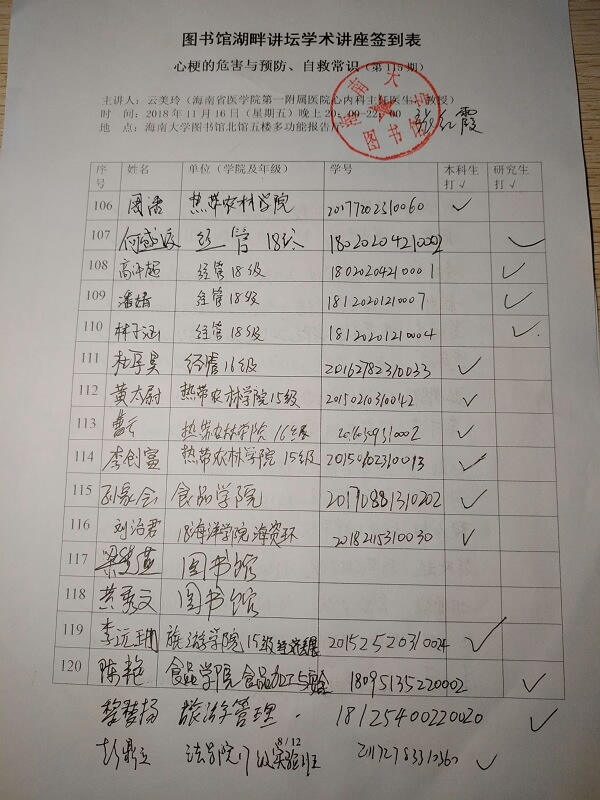 图书馆湖畔讲坛学术讲座签到表
心梗的危害与预防、自救常识（第115期）
主讲人：云美玲（海南省医学院第一附属医院心内科主任医生、教授）
时 间：2018年11月16日（星期五）晚上20：00-22：00
地 点：海南大学图书馆北馆五楼多功能报告厅
海南大学
图书馆
红霞
序号 姓名 单位（学院及年级） 学号 本科生打√ 研究生打√
106 周洁 热带农林学院 2017702310060 √
107 经管18级 18020204210002 √
108 高许超 经管18级 18020204210001 √
109 潘婧 经管18级 18120201210007 √
110 林子涵 经管18级 18120201210004 √
111 经管16级 20162782310033 √
112 黄太尉 热带农林学院15级 20150210310042 √
113 曹云 热带农林学院16级 √
114 李创富 热带农林学院15级 √
115 孙家会 食品学院 20170881310202 √
116 刘治君 18海洋学院海资环 20182115310030 √
117 图书馆
118 黄秀文 图书馆
119 李远珊 旅游学院15级 20152520310024 √
120 陈艳 食品学院食品加工与安全 18095135220002 √
黎梦扬 旅游管理 18125400220020 √
彭鼎立 法学院17级实验班 20172783310360 √
8 / 12